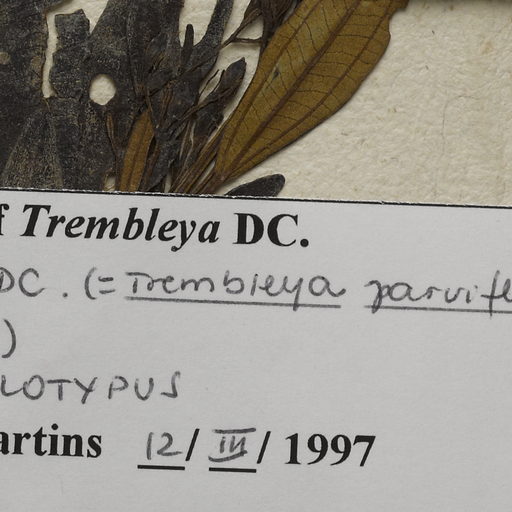 f Trembleya DC.
DC. (= Trembleya parvifl
)
LOTYPUS
artins 12/ III/ 1997